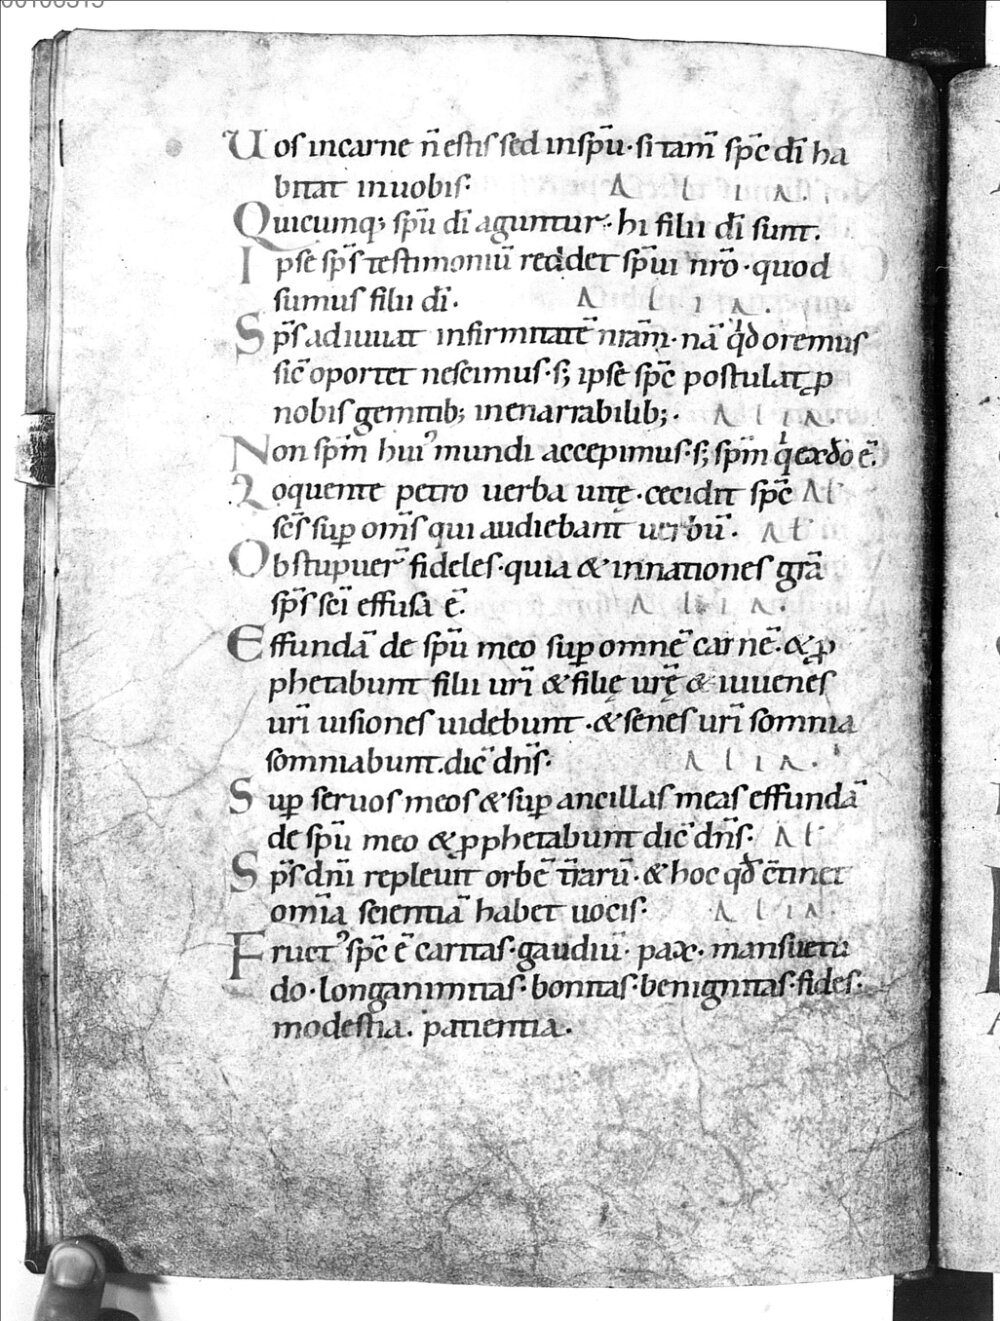 Uos incarne n̄ estis sed inspū · si tam̄ sp̄c dī ha
bitat inuobis · A L I A .
Quicumq; spū dī aguntur · hi filii dī sunt .
Ipse sp̄s testimoniū reddet sp̄ui nr̄o · quod
sumus filii dī . A L I A .
Sp̄s adiuuat infirmitatē nrām̄ · nā qd oremus
sic̄ oportet nescimus · s; ipse sp̄c postulat ꝓ
nobis gemitib; inenarrabilib; · A L I A .
Non sp̄m hui᾽ mundi accepimus · s; sp̄m q exdo ē .
Loquente petro uerba uitę · cecidit sp̄c AL
sc̄s suꝑ om̄s qui audiebant uerbū . AL
Obstupuer̄ fideles · quia & innationes grā
sp̄s sc̄i effusa ē . A L I A .
Effundā de spū meo suꝑ omnē carnē . & ꝓ
phetabunt filii urī & filię urę̄ & iuuenes
urī uisiones uidebunt . & senes urī somnia
somniabunt . dic̄ dn̄s · A L I A .
Suꝑ seruos meos & suꝑ ancillas meas effundā
de spū meo & ꝓphetabunt dic̄ dn̄s · AL
Sp̄s dn̄i repleuit orbē t̄rarū · & hoc qd c̄tinet
om̄ia scientiā habet uocis · A L I A .
Fruct᾽ sp̄c ē caritas · gaudiū · pax · mansuetu
do · longanimitas · bonitas · benignitas · fides ·
modestia . patientia .